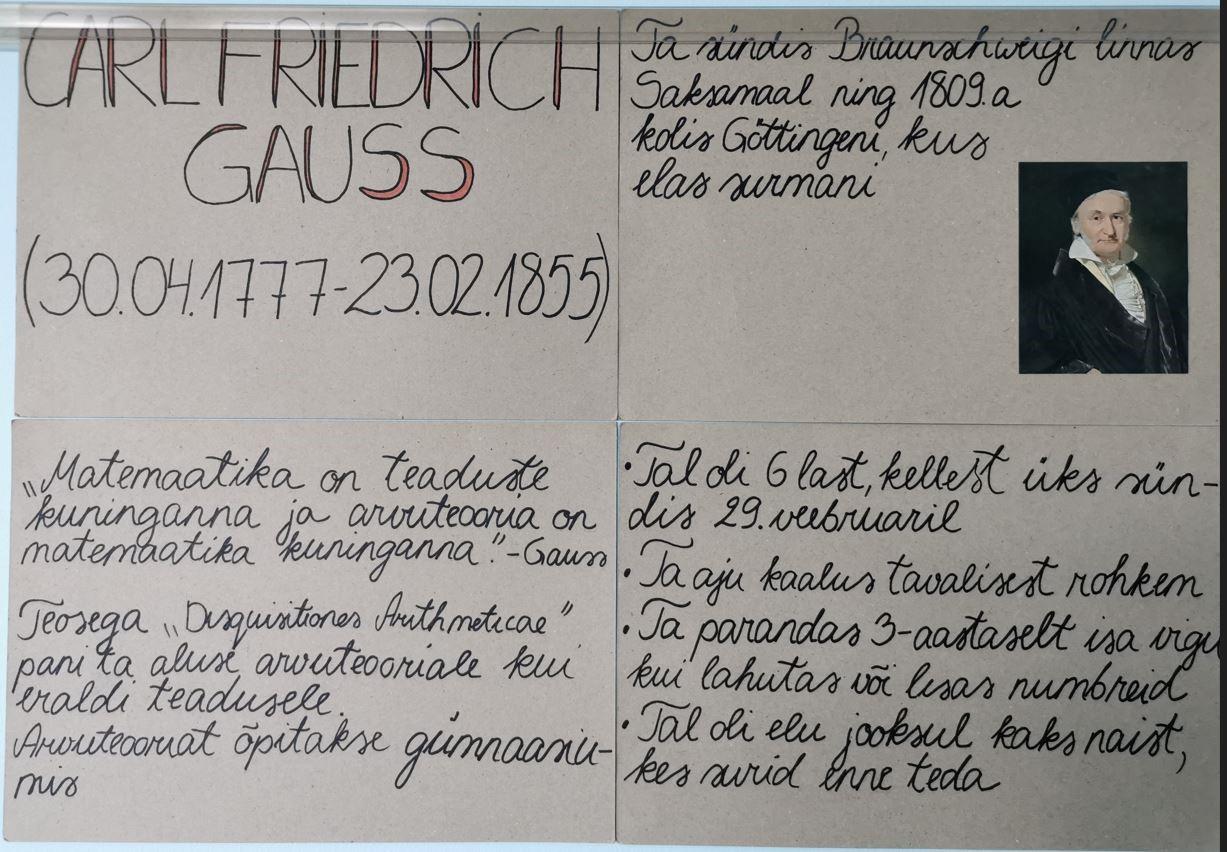 CARL FRIEDRICH
GAUSS
(30.04.1777-23.02.1855)
Ta sündis Braunschweigi linnas
Saksamaal ning 1809.a
kolis Göttingeni, kus
elas surmani
„Matemaatika on teaduste
kuninganna ja arvuteooria on
matemaatika kuninganna.”-Gauss
Teosega „Disquisitiones Arithmeticae”
pani ta aluse arvuteooriale kui
eraldi teadusele.
Arvuteooriat õpitakse gümnaasiu-
mis
• Tal oli 6 last, kellest üks sün-
dis 29. veebruaril
• Ta aju kaalus tavalisest rohkem
• Ta parandas 3-aastaselt isa vigu
kui lahutas või lisas numbreid
• Tal oli elu jooksul kaks naist,
kes surid enne teda